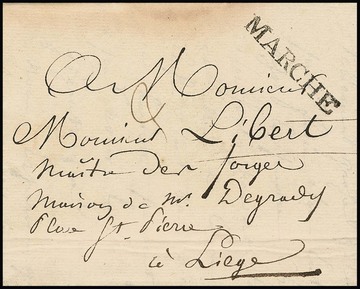 MARCHE
A Monsieur
Monsieur Libert
maître des forges
maison de Mr. Degrady
place St. Pierre
à Liege